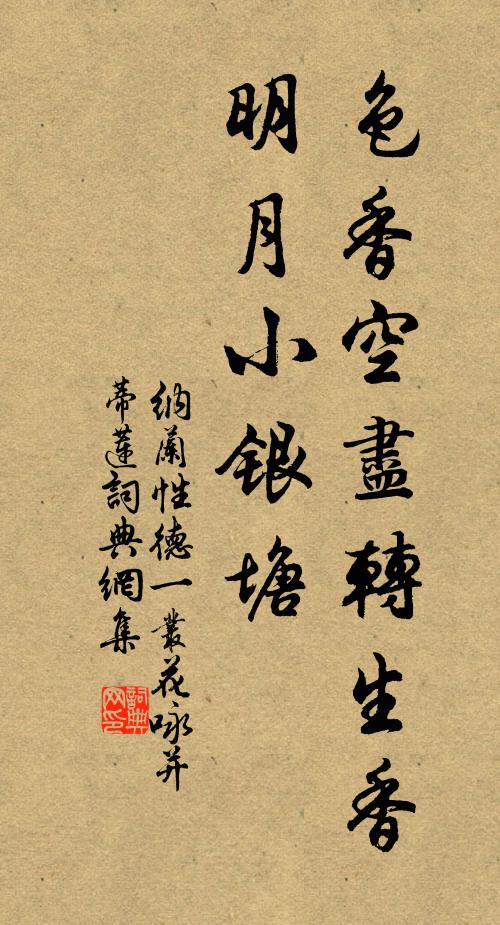 色香空盡轉生香
明月小銀塘
納蘭性德一叢花咏并
蒂蓮詞典網集
詞典网印